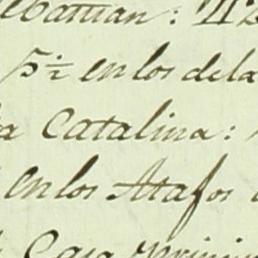 ebastian: 112
5½ en los de la
a Catalina:
en los Atafos
Casa